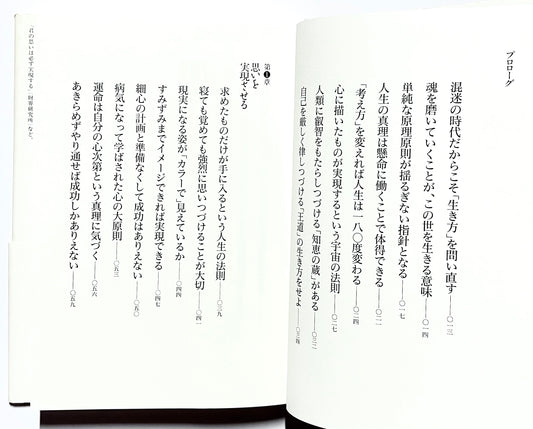 プロローグ
混迷の時代だからこそ「生き方」を問い直す――〇一三
魂を磨いていくことが、この世を生きる意味――〇一四
単純な原理原則が揺るぎない指針となる――〇一七
人生の真理は懸命に働くことで体得できる――〇二一
「考え方」を変えれば人生は一八〇度変わる――〇二四
心に描いたものが実現するという宇宙の法則――〇二七
人類に叡智をもたらしつづける「知恵の蔵」がある――〇三一
自己を厳しく律しつづける「王道」の生き方をせよ――〇三四
第1章
思いを
実現させる
求めたものだけが手に入るという人生の法則――〇三九
寝ても覚めても強烈に思いつづけることが大切――〇四一
現実になる姿が「カラーで」見えているか――〇四四
すみずみまでイメージできれば実現できる――〇四七
細心の計画と準備なくして成功はありえない――〇五〇
病気になって学ばされた心の大原則――〇五三
運命は自分の心次第という真理に気づく――〇五六
あきらめずやり通せば成功しかありえない――〇五九
『君の思いは必ず実現する』（財界研究所）など。